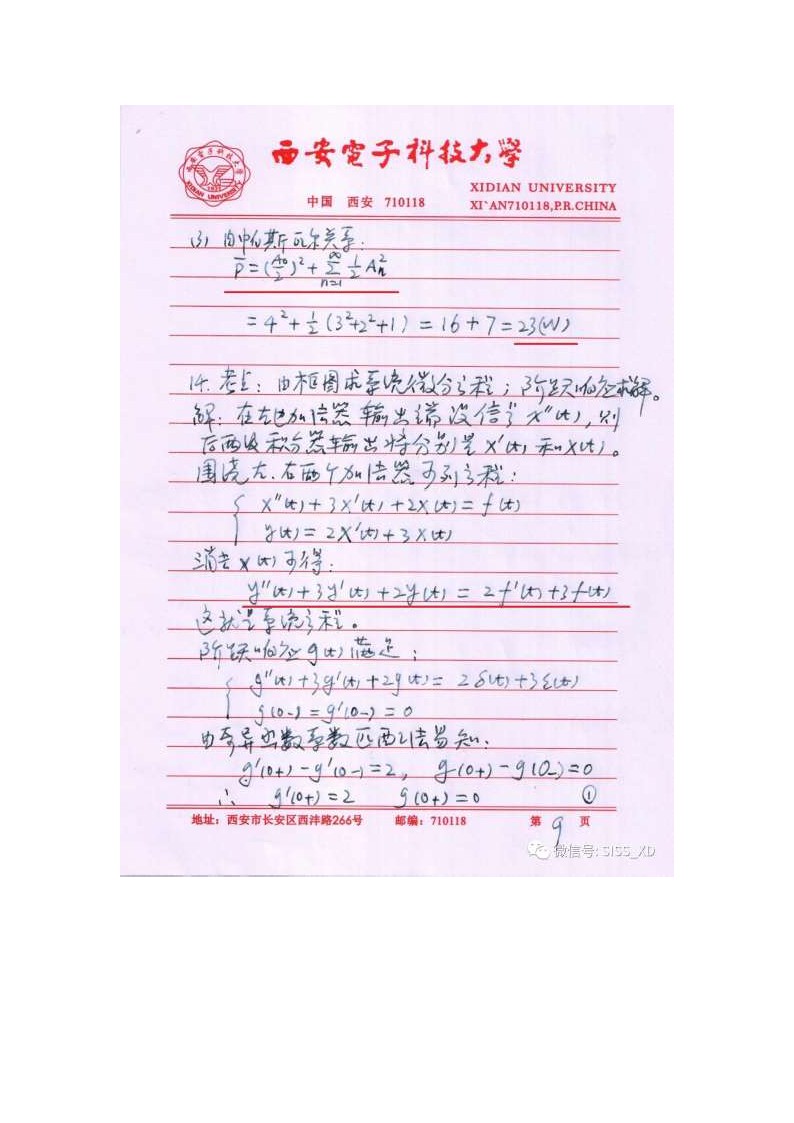 西安電子科技大學
XIDIAN UNIVERSITY
中国 西安 710118
XI`AN710118,P.R.CHINA
(3) 由帕斯瓦尔关系:
P̄=(A₀/2)²+∑_{n=1}^{∞} 1/2 Aₙ²
=4²+1/2(3²+2²+1)=16+7=23(W)
14. 考点: 由框图求系统微分方程; 阶跃响应求解。
解: 在左边加法器输出端设信号 x''(t), 则
后两级积分器输出将分别是 x'(t) 和 x(t)。
围绕左、右两个加法器可列方程:
x''(t)+3x'(t)+2x(t)=f(t)
y(t)=2x'(t)+3x(t)
消去x(t)可得:
y''(t)+3y'(t)+2y(t)=2f'(t)+3f(t)
这就是系统方程。
阶跃响应g(t)满足:
g''(t)+3g'(t)+2g(t)=2δ(t)+3ε(t)
g(0-)=g'(0-)=0
由奇异函数系数匹配法易知:
g'(0+)-g'(0-)=2, g(0+)-g(0-)=0
∴ g'(0+)=2 g(0+)=0 ①
地址: 西安市长安区西沣路266号 邮编: 710118 第 9 页
微信号: SISS_XD